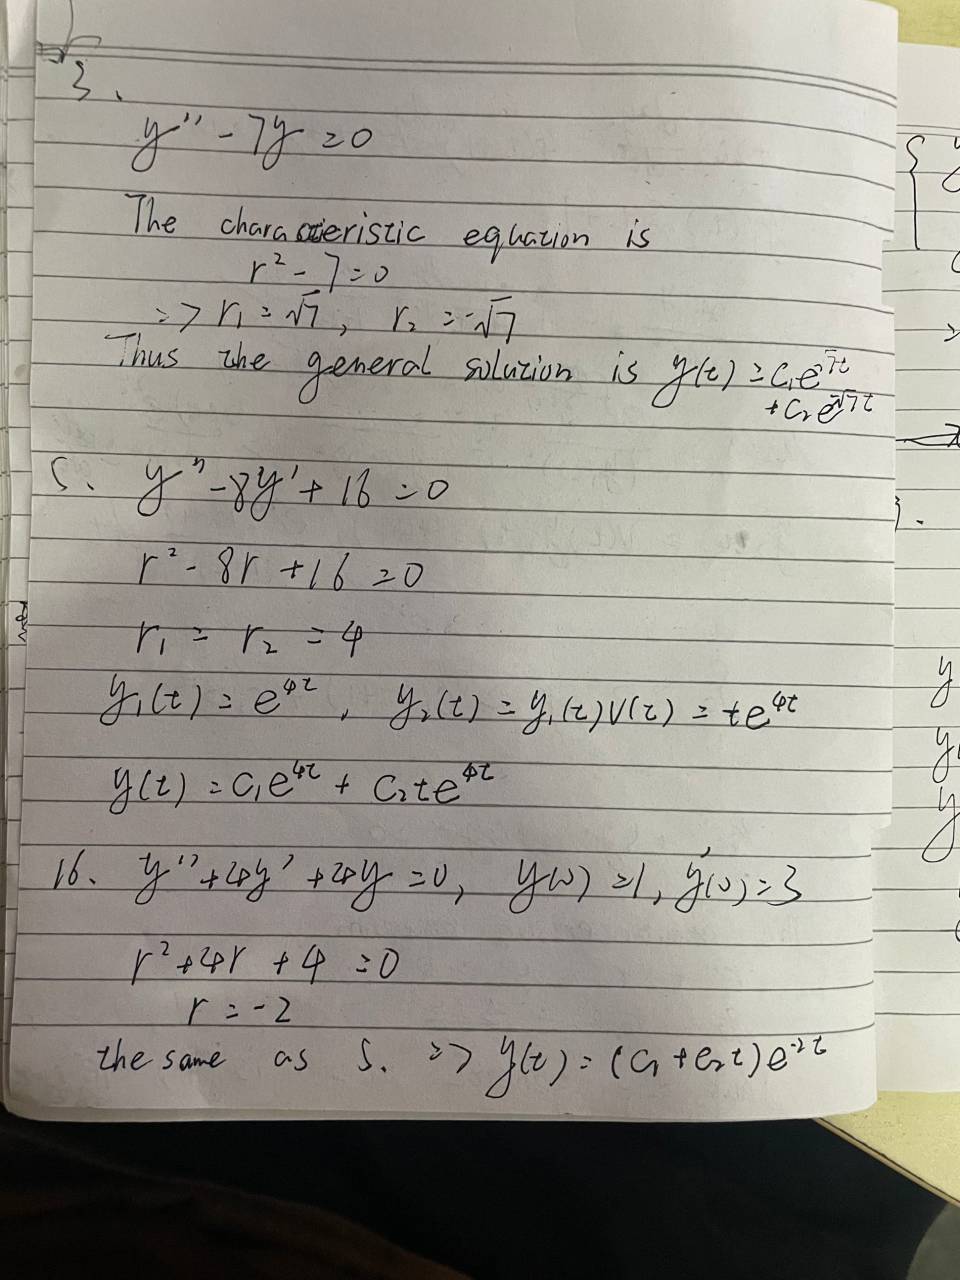 3.
y'' - 7y = 0
The characteristic equation is
r² - 7 = 0
=> r₁ = √7, r₂ = -√7
Thus the general solution is y(t) = c₁e^√7t
+ c₂e^-√7t
5. y'' - 8y' + 16 = 0
r² - 8r + 16 = 0
r₁ = r₂ = 4
y₁(t) = e^4t, y₂(t) = y₁(t)V(t) = te^4t
y(t) = c₁e^4t + c₂te^4t
16. y'' + 4y' + 4y = 0, y(0) = 1, y'(0) = 3
r² + 4r + 4 = 0
r = -2
the same as 5. => y(t) = (c₁ + c₂t)e^-2t